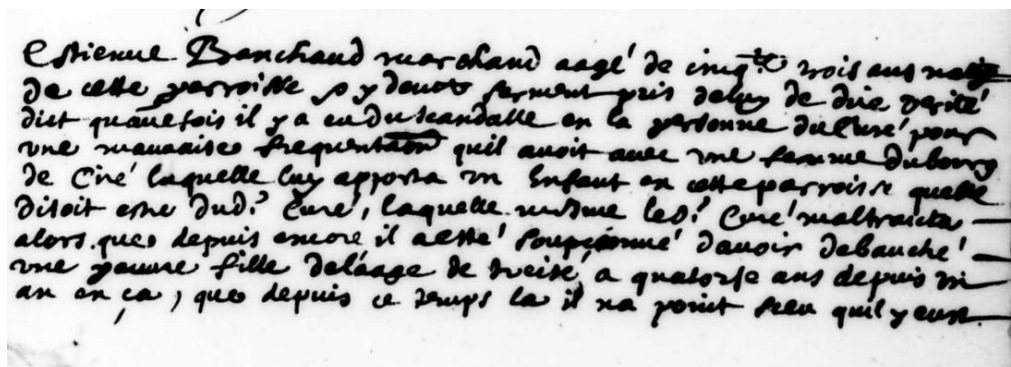 Estienne Banchaud marchand aagé de cinq.te trois ans natif
de cette parroisse p y devots serment pris de luy de dire verité
dict qu'autrefois il y a eu du scandalle en la personne du Curé pour
une mauvaise frequentaon quil avoit avec une femme du bourg
de Ciré laquelle luy apporta un Enfant en cette parroisse quelle
disoit estre dud.t Curé, laquelle mesme led.t Curé maltraicta
alors, que depuis encore il a esté soupçonné davoir debauché
une jeune fille de léage de treise, a quatorse ans depuis un
an en ça, que depuis ce temps la il na point sceu quil y eust